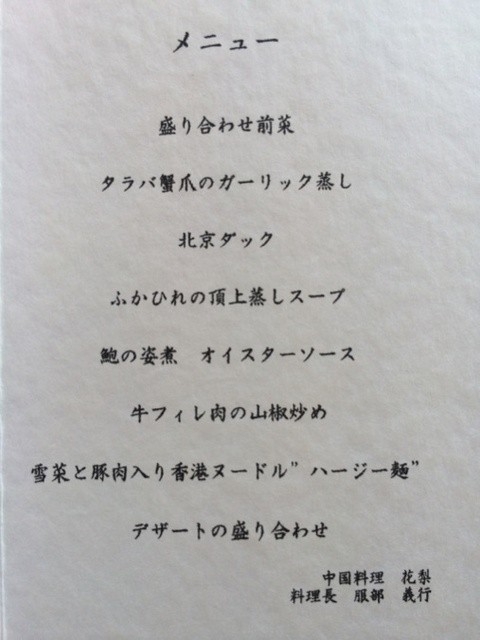 メニュー
盛り合わせ前菜
タラバ蟹爪のガーリック蒸し
北京ダック
ふかひれの頂上蒸しスープ
鮑の姿煮　オイスターソース
牛フィレ肉の山椒炒め
雪菜と豚肉入り香港ヌードル”ハージー麺”
デザートの盛り合わせ
中国料理　花梨
料理長　服部　義行